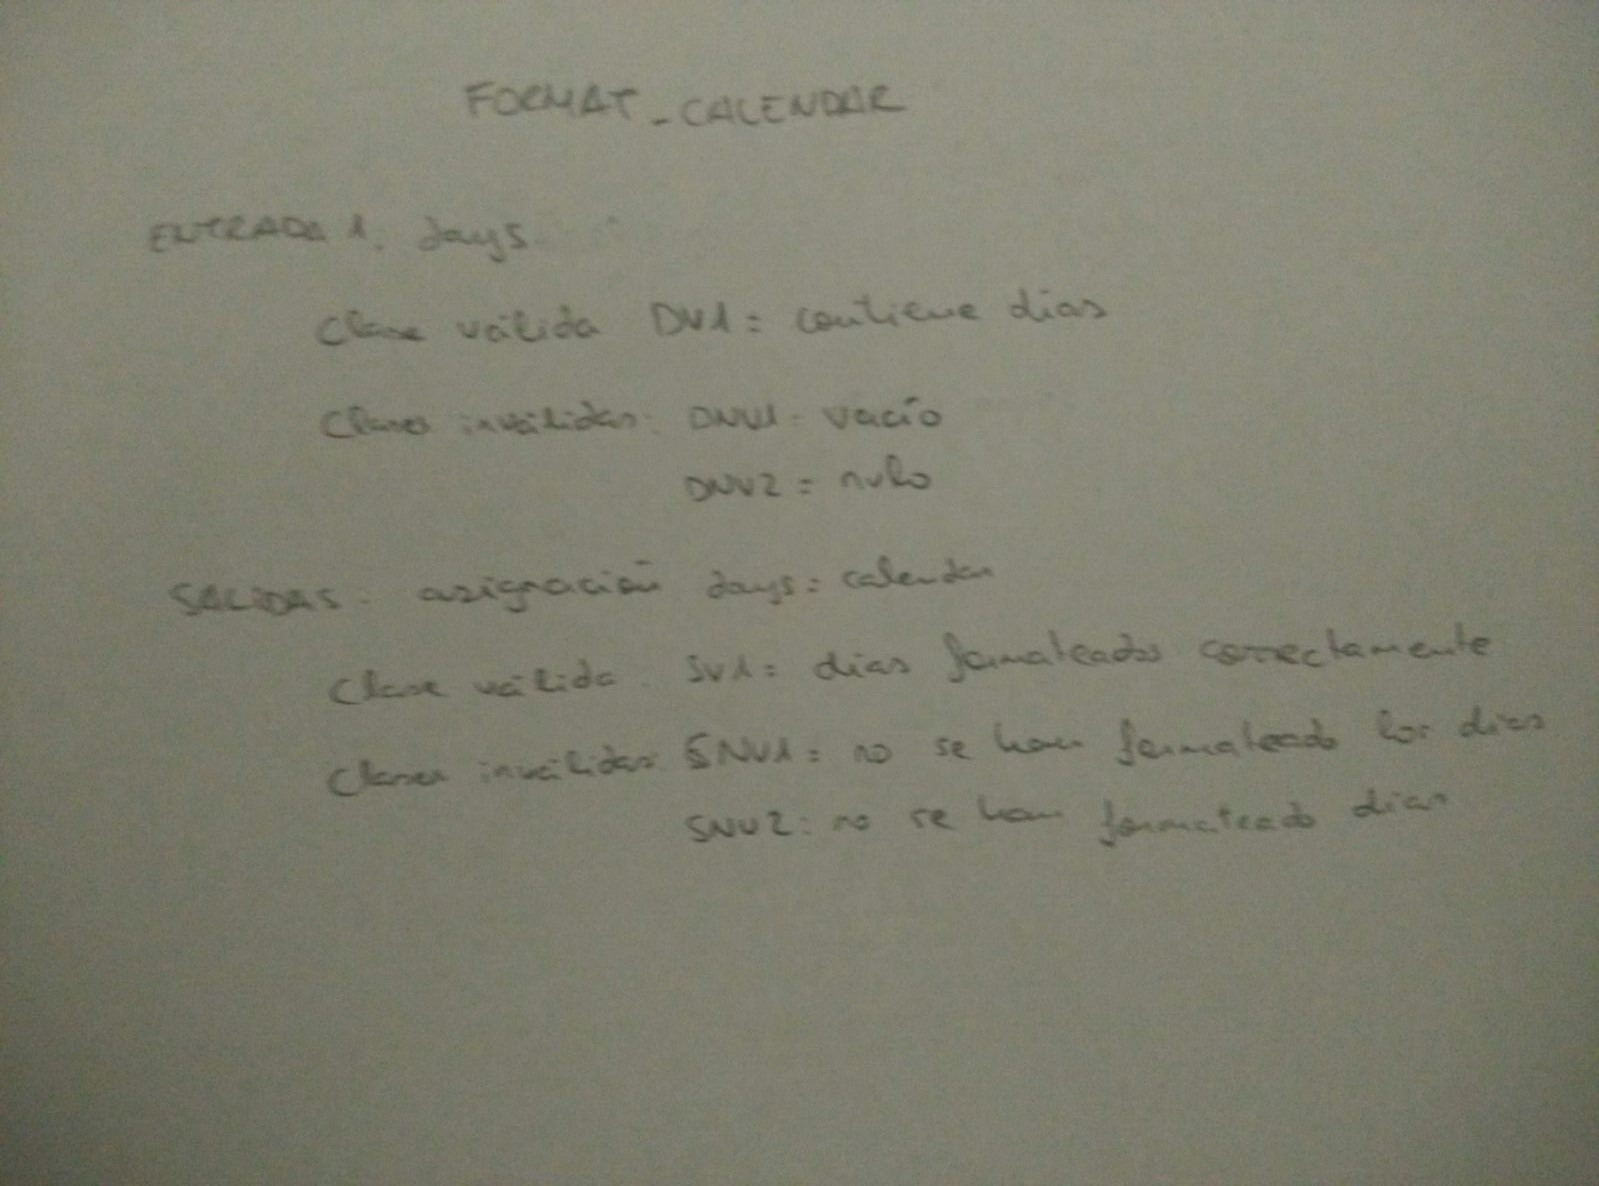 FORMAT_CALENDAR
ENTRADA 1. days
Clase válida DV1 = contiene dias
Clases inválidas: DNV1 = vacío
DNV2 = nulo
SALIDAS: asignación days: calendar
Clase válida. SV1 = dias formateados correctamente
Clases inválidas: SNV1 = no se han formateado los dias
SNV2: no se han formateado dias